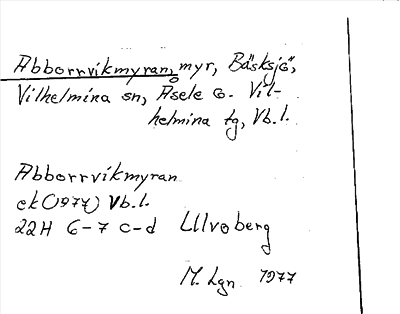 Abborrvikmyran, myr, Bäsksjö,
Vilhelmina sn, Åsele o. Vil-
helmina tg, Vb.l.
Abborrvikmyran
ek (1977) Vb.l.
22H 6-7 c-d Ulvoberg
M. Lgn 1977